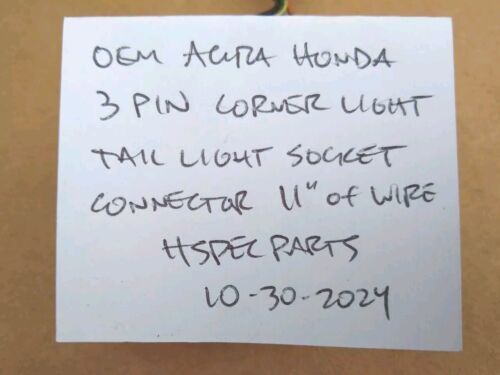 OEM ACURA HONDA
3 PIN CORNER LIGHT
TAIL LIGHT SOCKET
CONNECTOR 11" of WIRE
HSPEC PARTS
10-30-2024